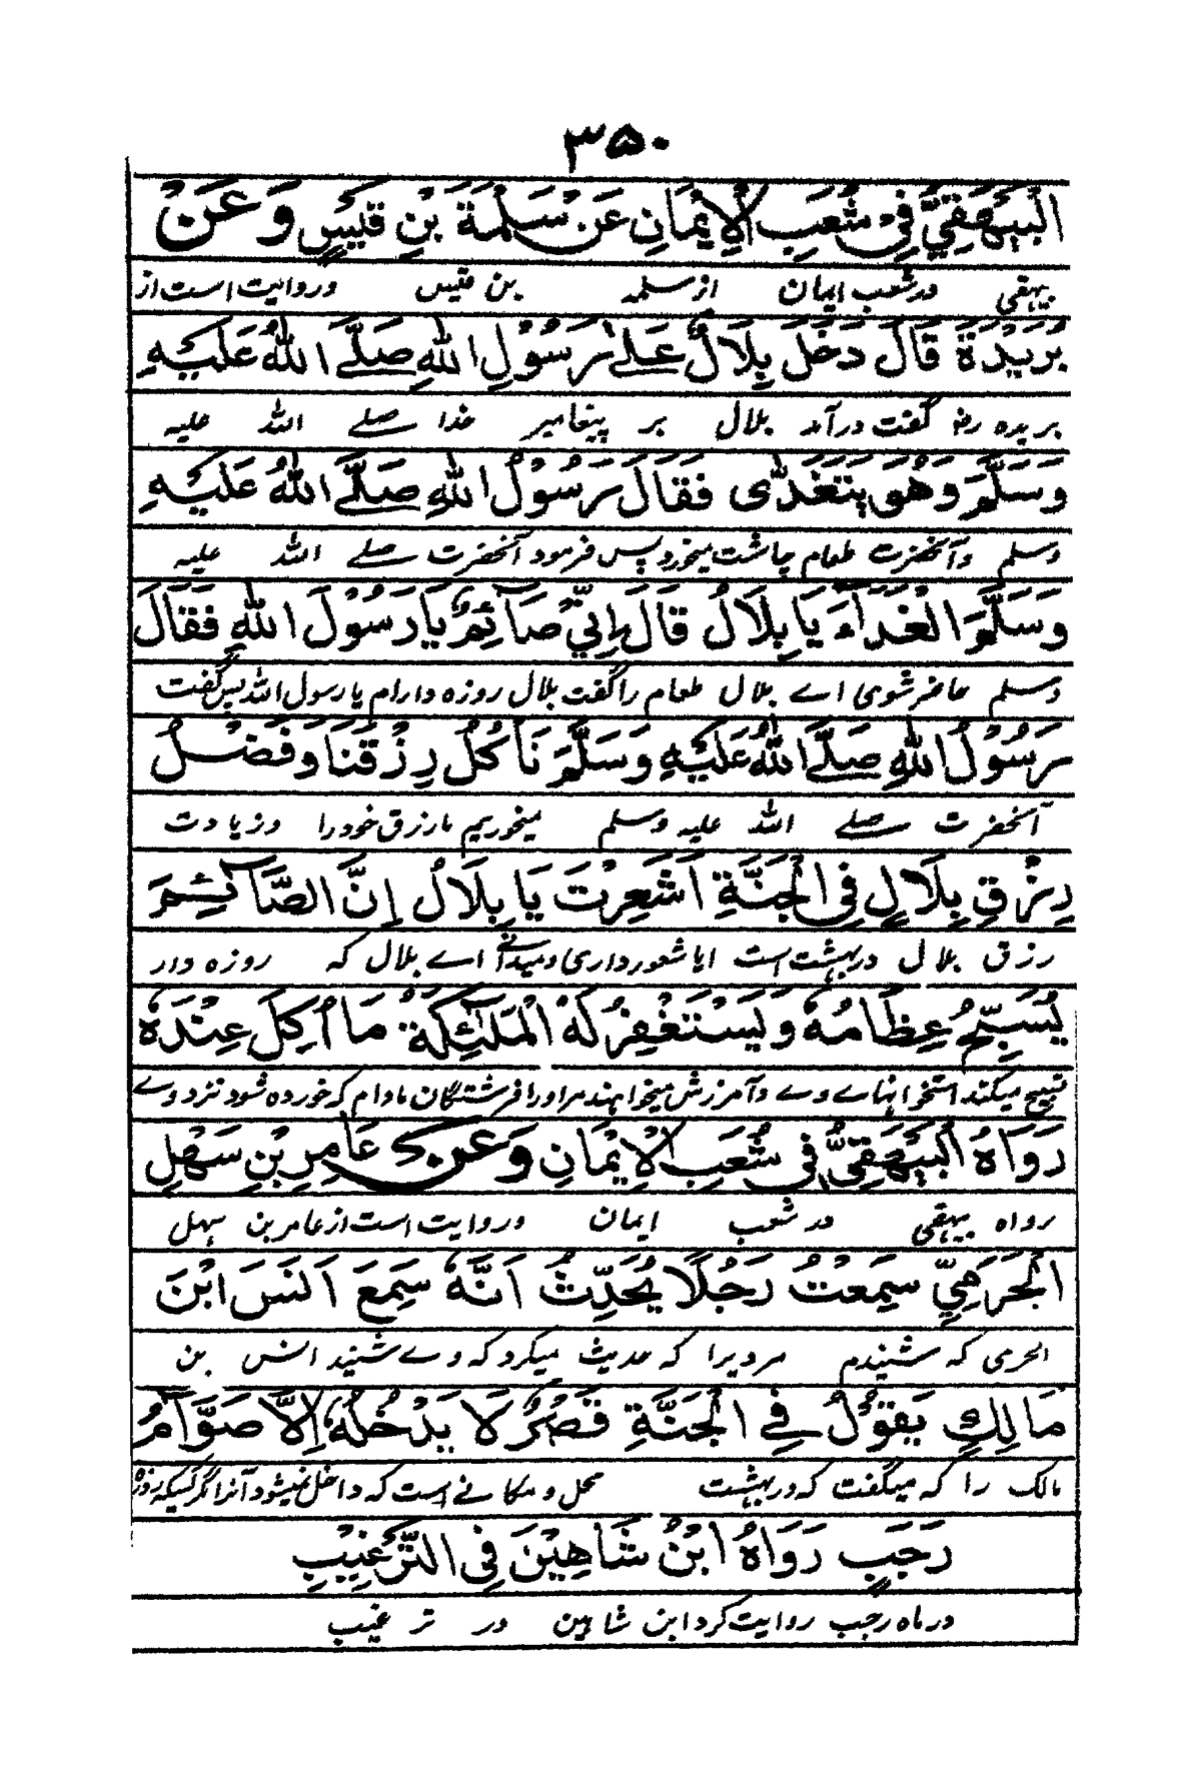 ۳۵۰
الْبَيْهَقِيُّ فِي شُعَبِ الْاِيْمَانِ عَنْ سَلَمَةَ بْنِ قَيْسٍ وَعَنْ
بیهقی در شعب ایمان از سلمه بن قیس و روایت است از
بُرَيْدَةَ قَالَ دَخَلَ بِلَالٌ عَلٰے رَسُوْلِ اللهِ صَلَّے اللهُ عَلَيْهِ
بریده رض گفت درآمد بلال بر پیغامبر خدا صلے الله علیه
وَسَلَّمَ وَهُوَ يَتَغَدّٰى فَقَالَ رَسُوْلُ اللهِ صَلَّے اللهُ عَلَيْهِ
وسلم وآنحضرت طعام چاشت میخورد پس فرمود آنحضرت صلے الله علیه
وَسَلَّمَ الْغَدَآءَ يَا بِلَالُ قَالَ اِنِّيْ صَآئِمٌ يَا رَسُوْلَ اللهِ فَقَالَ
وسلم حاضر شوی اے بلال طعام را گفت بلال روزه دارام یا رسول الله پس گفت
رَسُوْلُ اللهِ صَلَّے اللهُ عَلَيْهِ وَسَلَّمَ نَاْكُلُ رِزْقَنَا وَفَضْلُ
آنحضرت صلے الله علیه وسلم میخوریم ما رزق خود را و زیادت
رِزْقِ بِلَالٍ فِى الْجَنَّةِ اَشَعِرْتَ يَا بِلَالُ اِنَّ الصَّآئِمَ
رزق بلال در بهشت است ایا شعور داری و میدانی اے بلال که روزه دار
يُسَبِّحُ عِظَامُهٗ وَيَسْتَغْفِرُ لَهُ الْمَلٰٓئِكَةُ مَا اُكِلَ عِنْدَهٗ
تسبیح میکند استخوانهاے وے وآمرزش میخواهند مر او را فرشتگان مادام که خورده شود نزد وے
رَوَاهُ الْبَيْهَقِيُّ فِى شُعَبِ الْاِيْمَانِ وَعَنْ عَامِرِ بْنِ سَهْلٍ
رواه بیهقی در شعب ایمان و روایت است از عامر بن سهل
الْجَرَمِيِّ سَمِعْتُ رَجُلًا يُحَدِّثُ اَنَّهٗ سَمِعَ اَنَسَ ابْنَ
الجرمی که شنیدم مردیرا که حدیث میکرد که وے شنید انس بن
مَالِكٍ يَقُوْلُ فِے الْجَنَّةِ قَصْرٌ لَا يَدْخُلُهٗ اِلَّا صَوَّامُ
مالک را که میگفت که در بهشت محل و مکانے است که داخل نمیشود آنرا مگر کسیکه روزه
رَجَبٍ رَوَاهُ ابْنُ شَاهِيْنَ فِى التَّرْغِيْبِ
در ماه رجب روایت کرد ابن شاهین در ترغیب